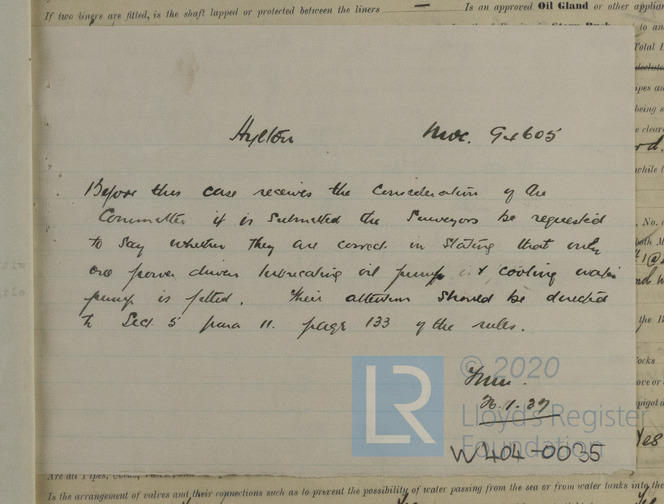 If two liners are fitted, is the shaft lapped or protected between the liners —
Is an approved Oil Gland or other applian
Hylton Nwc. 94605
Before this case receives the consideration of the
Committee it is submitted the Surveyors be requested
to say whether they are correct in stating that only
one power driven lubricating oil pump & cooling water
pump is fitted. Their attention should be directed
to Sect. 5 para 11. page 133 of the rules.
© 2020
LR
Lloyd's Register
Foundation
1.37
W404-0035
Is the arrangement of valves and their connections such as to prevent the possibility of water passing from the sea or from water tanks into the